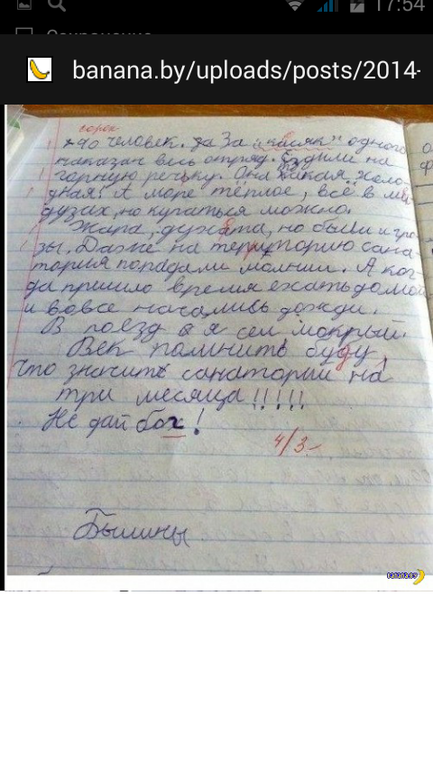 17:54
Сохранение
banana.by/uploads/posts/2014-
сорок
40 человек. За За "касяк" одного
наказан весь отряд. Ездили на
горную речьку. Она такая холо-
дная! А море тёплое, всё в ме
дузах, но купаться можно.
Жара, духота, но были и гро-
зы. Даже на территорию сана-
тория попадами молнии. А ког-
да пришло время ехать домой
и вовсе начались дожди.
В поезд я сел мокрый.
Век помнить буду,
что значить санаторий на
три месяца!!!!!
Не дай бох!
4/3-
Былины
banana.by